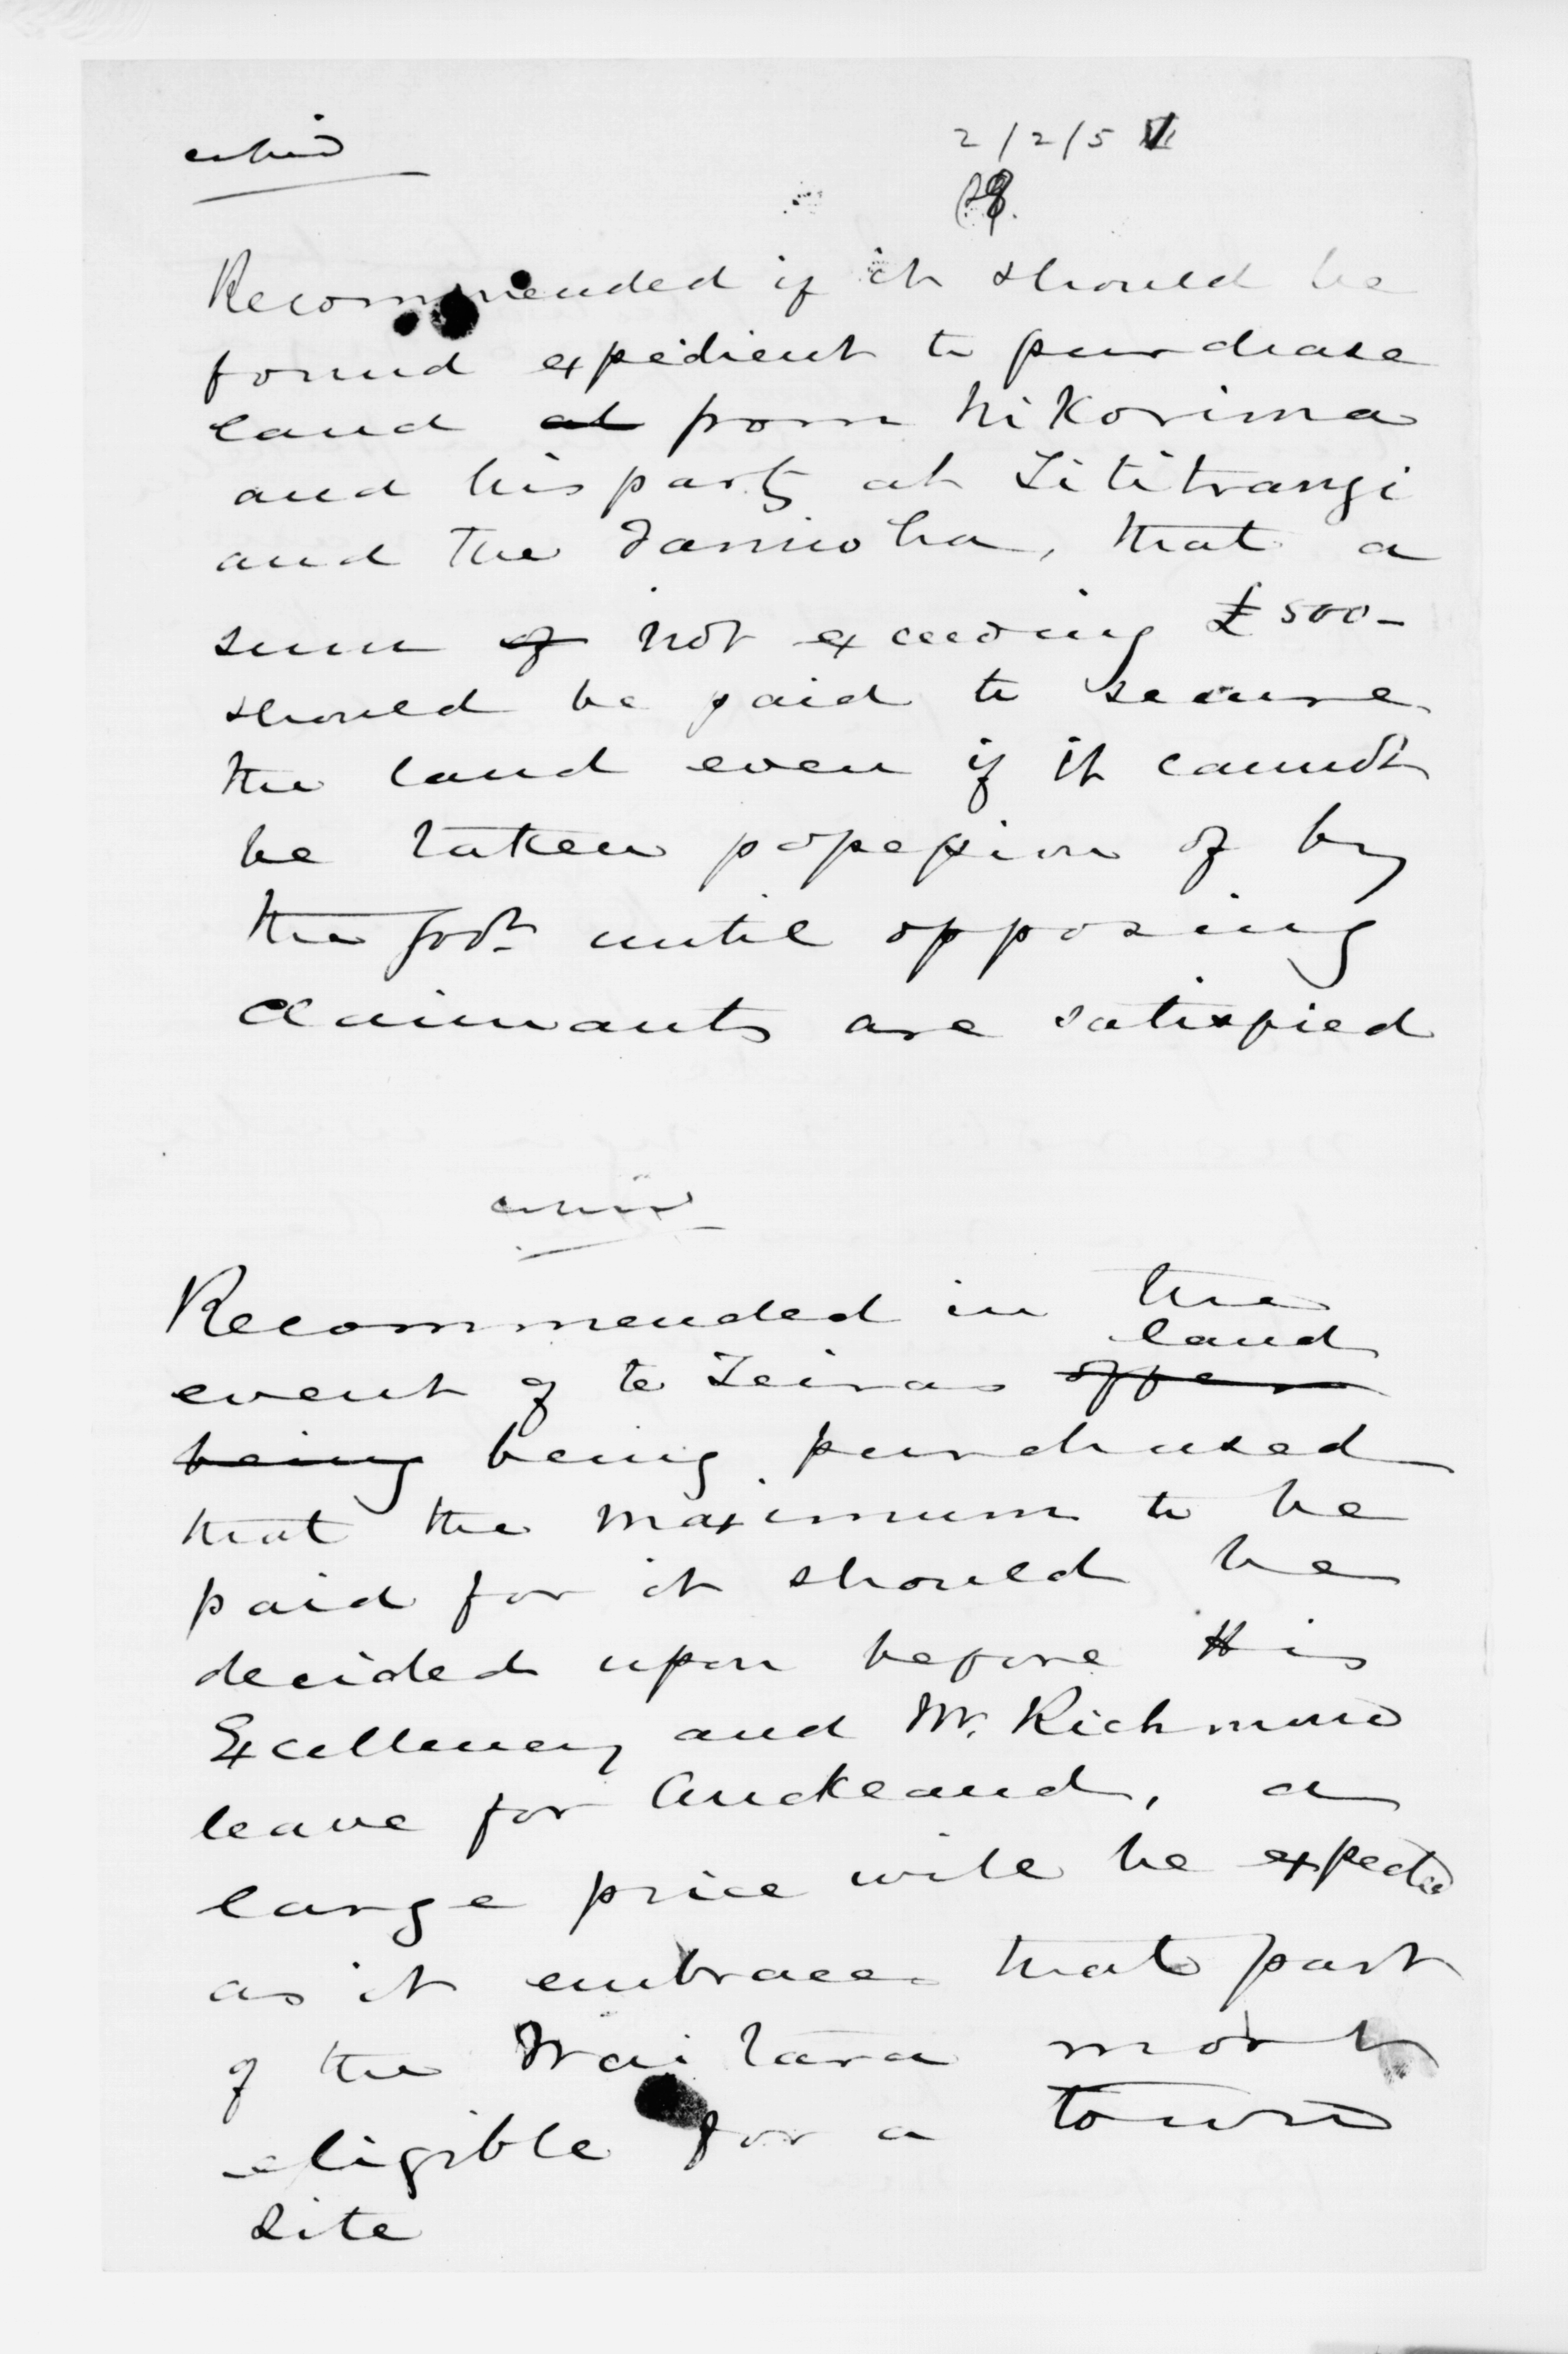 2/2/5
Recommended if it should be
found expedient to purchase
land at from Nikorima
and his party at Tititrangi
and the, that a
sum of not exceeding £500-
should be paid to secure
the land even if it cannot
be taken possession of by
the Govt until opposing
claimants are satisfied
Recommended in the
land
event of te Teiras offer
being being purchased
that the maximum to be
paid for it should be
decided upon before His
Excellency and Mr. Richmond
leave for Auckland, a
large price will be expected
as it embraces that part
of the Waitara most
eligible for a town
site